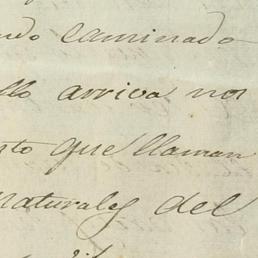 ndo caminado
llo arriva nos
nto que llaman
Naturales del